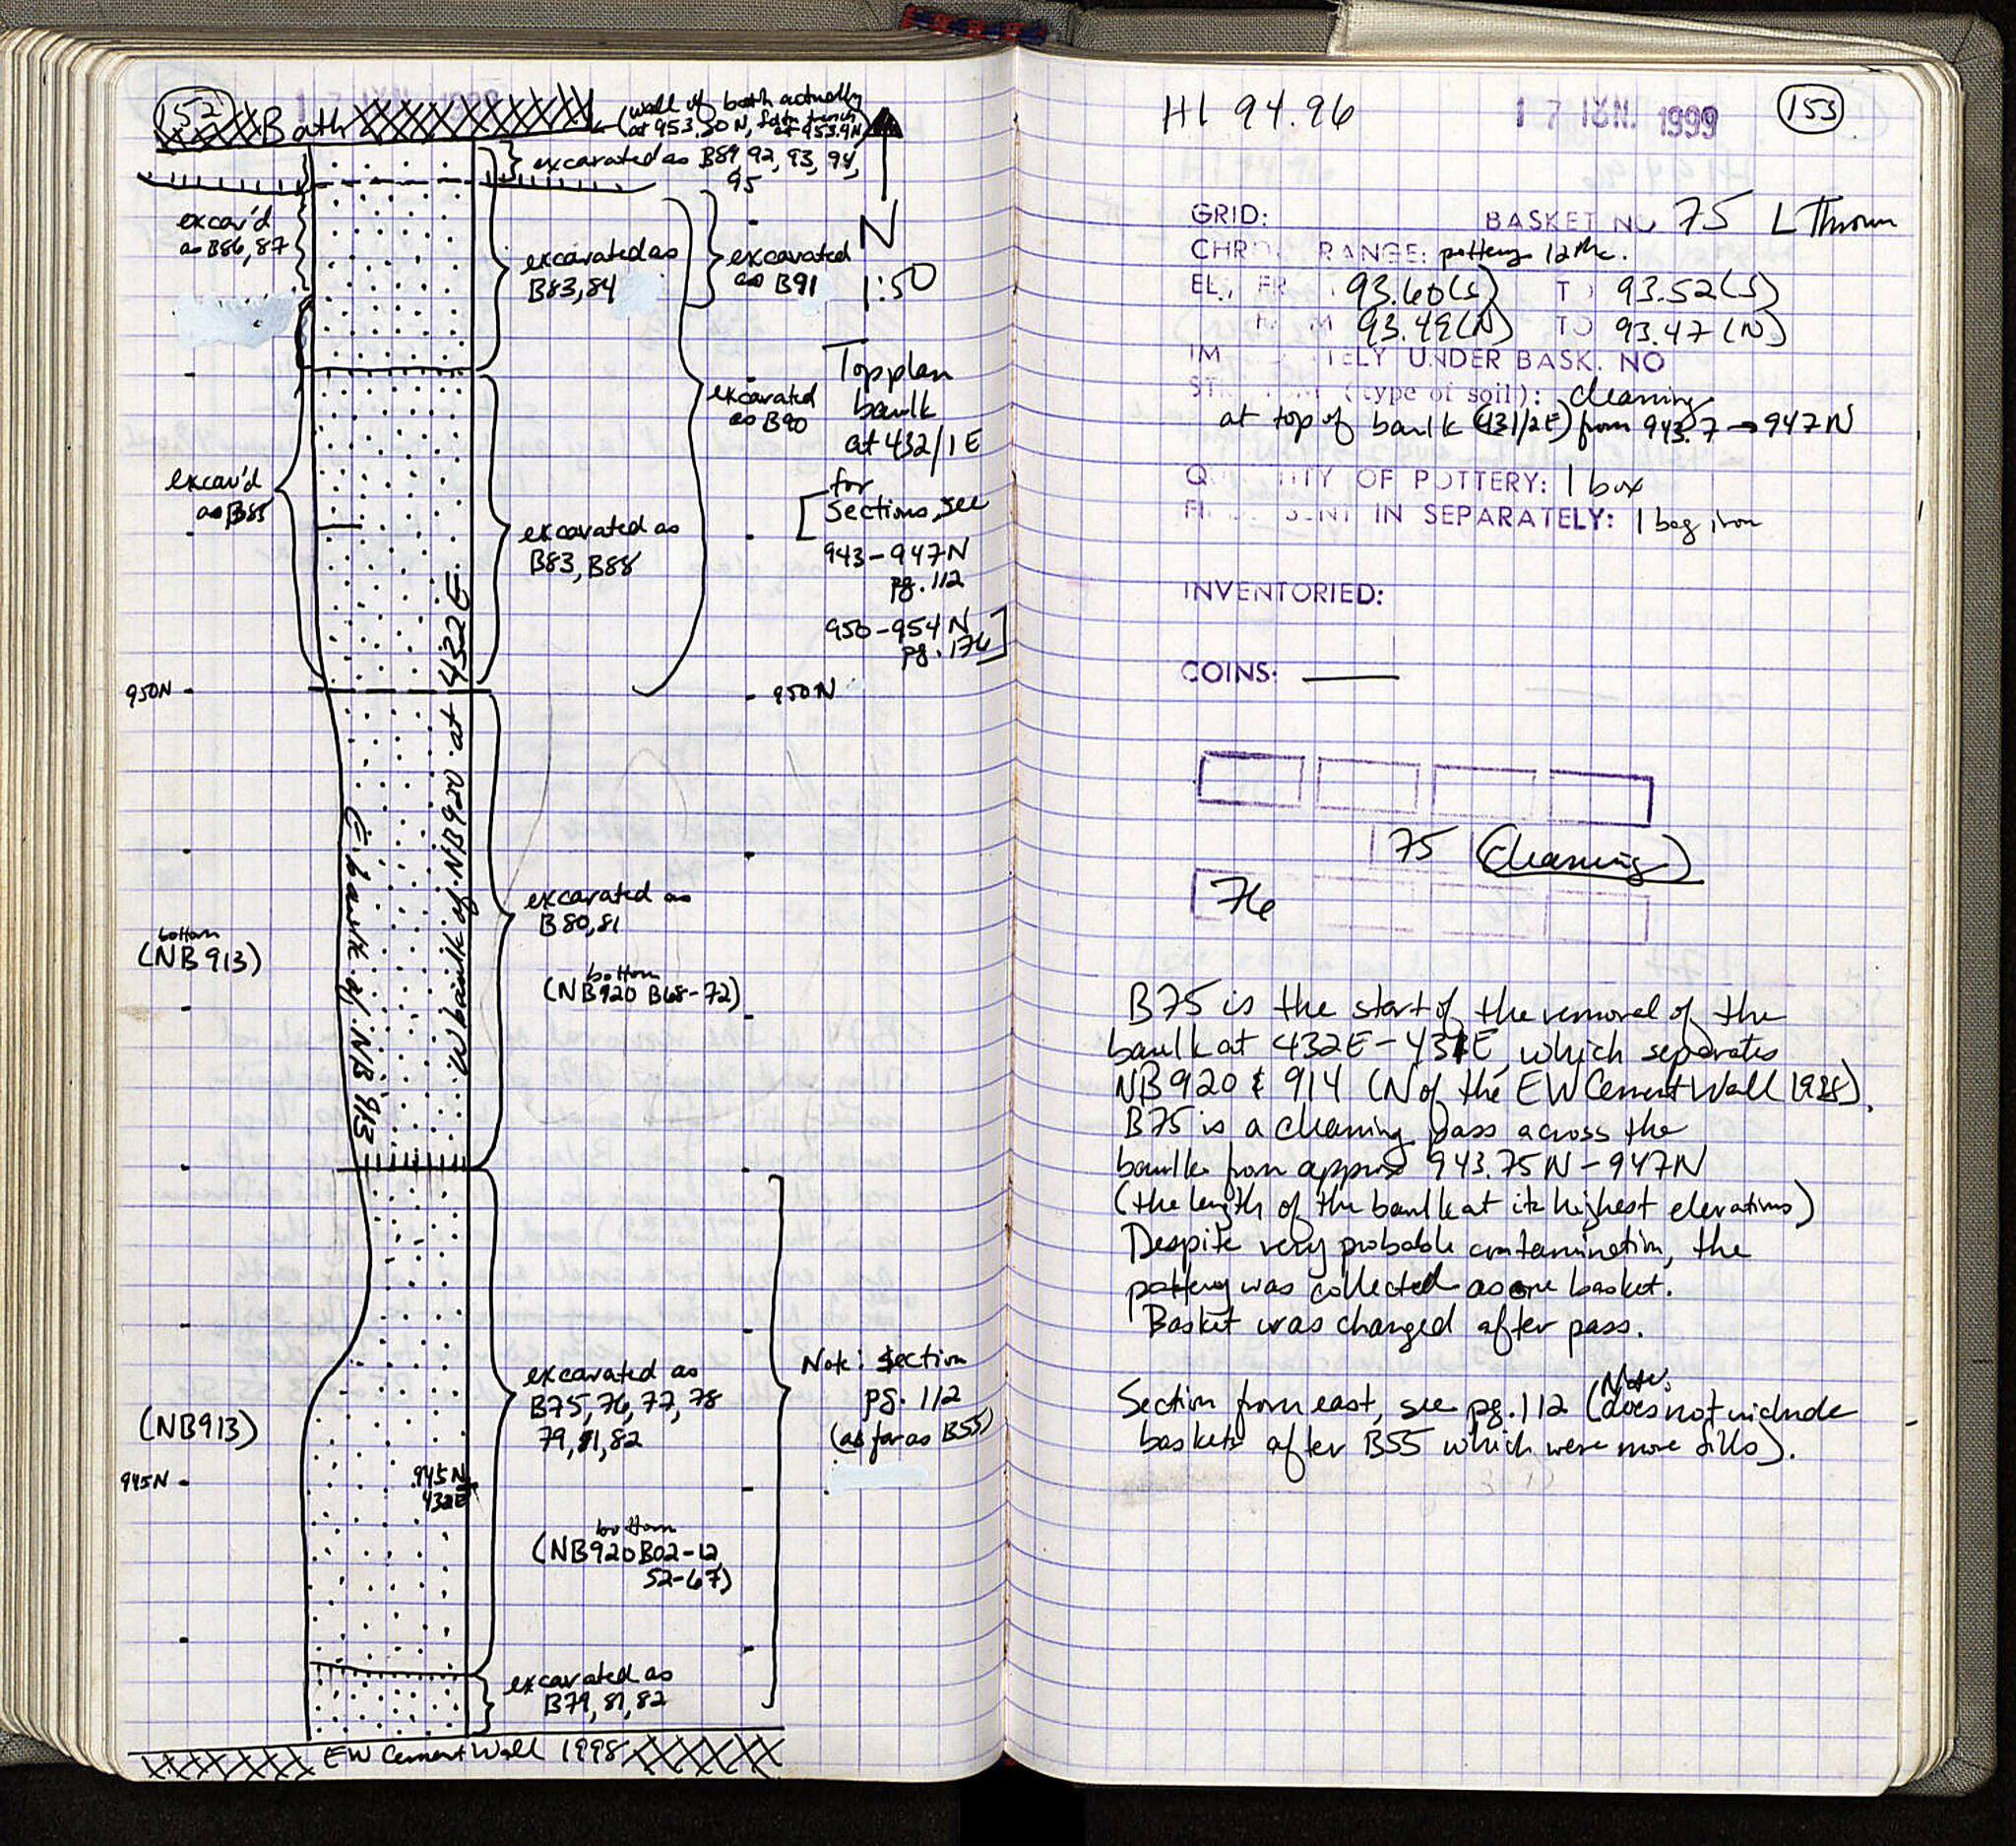 152
17 JUN. 1999
Bath
(wall of bath actually
at 953.80N, from trench
at 953.9N)
excavated as B89, 92, 93, 94,
95
excav'd
as B86, 87
excavated as
B83, 84
excavated
as B91
N
1:50
Top plan
baulk
at 432/1 E
for
Sections, see
943-947N
pg. 112
950-954N
pg. 176
excavated
as B90
excav'd
as B85
excavated as
B83, B88
950N
950N
E. baulk of NB 913
W baulk of NB920 at 432E
excavated as
B80, 81
bottom
(NB 913)
bottom
(NB920 B68-72)
excavated as
B75, 76, 77, 78
79, 81, 82
Note: section
pg. 112
(as far as B55)
(NB913)
945N
945N
432E
bottom
(NB920 B02-12,
52-67)
excavated as
B79, 81, 82
EW Cement Wall 1998
H1 94.96
17 JUN. 1999
153
GRID: BASKET NO 75 L Thrown
CHR RANGE: pottery 12thc.
EL., FR 93.60(S) T 93.52(S)
M 93.49(N) TO 93.47(N)
IM TELY UNDER BASK. NO
(type of soil): cleaning
at top of baulk (431/2E) from 943.7 → 947N
QU TITY OF POTTERY: 1 box
SENT IN SEPARATELY: 1 bag iron
INVENTORIED:
COINS: —
75 (Cleaning)
76
B75 is the start of the removal of the
baulk at 432E-431E, which separates
NB920 & 914 (N of the EW Cement Wall 1998).
B75 is a cleaning pass across the
baulk from approx 943.75N-947N
(the length of the baulk at its highest elevations)
Despite very probable contamination, the
pottery was collected as one basket.
Basket was changed after pass.
Section from east, see pg. 112 (Note: does not include
baskets after B55 which were more fills).